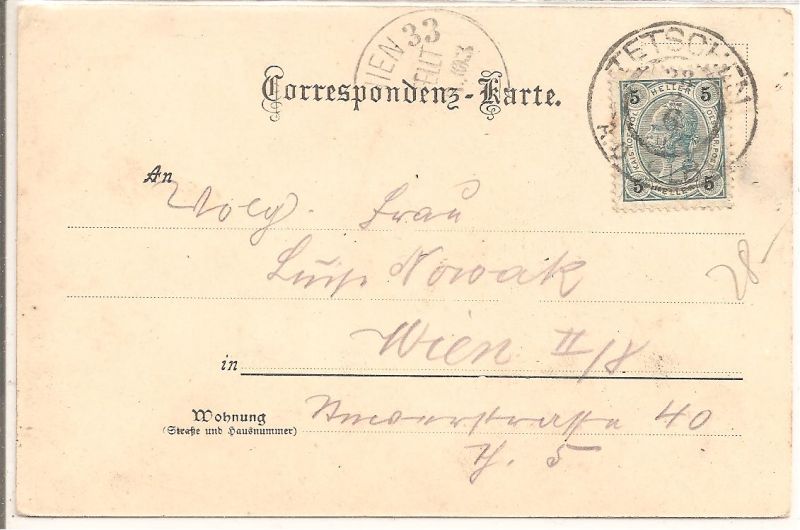 WIEN 33
Correspondenz-Karte.
TETSCHEN
5 HELLER 5
5 HELLER 5
An
Wolg. Frau
Luise Nowak
in Wien II/8
Wohnung
(Straße und Hausnummer)
40
T. 5
28